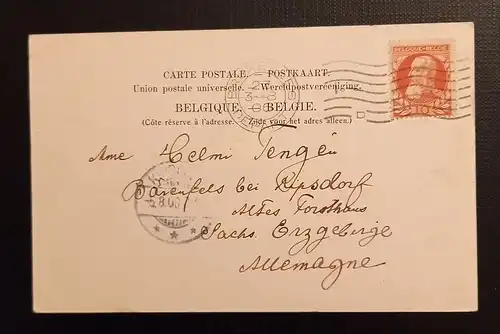 CARTE POSTALE. — POSTKAART.
Union postale universelle. — Wereldpostvereeniging.
BELGIQUE. — BELGIË.
(Côte réservé à l'adresse. — Zijde voor het adres alleen.)
BELGIQUE-BELGIË
10
Mme Helmi Tengén
Bärenfels bei Kipsdorf
Altes Forsthaus
Sachs. Erzgebirge
Allemagne